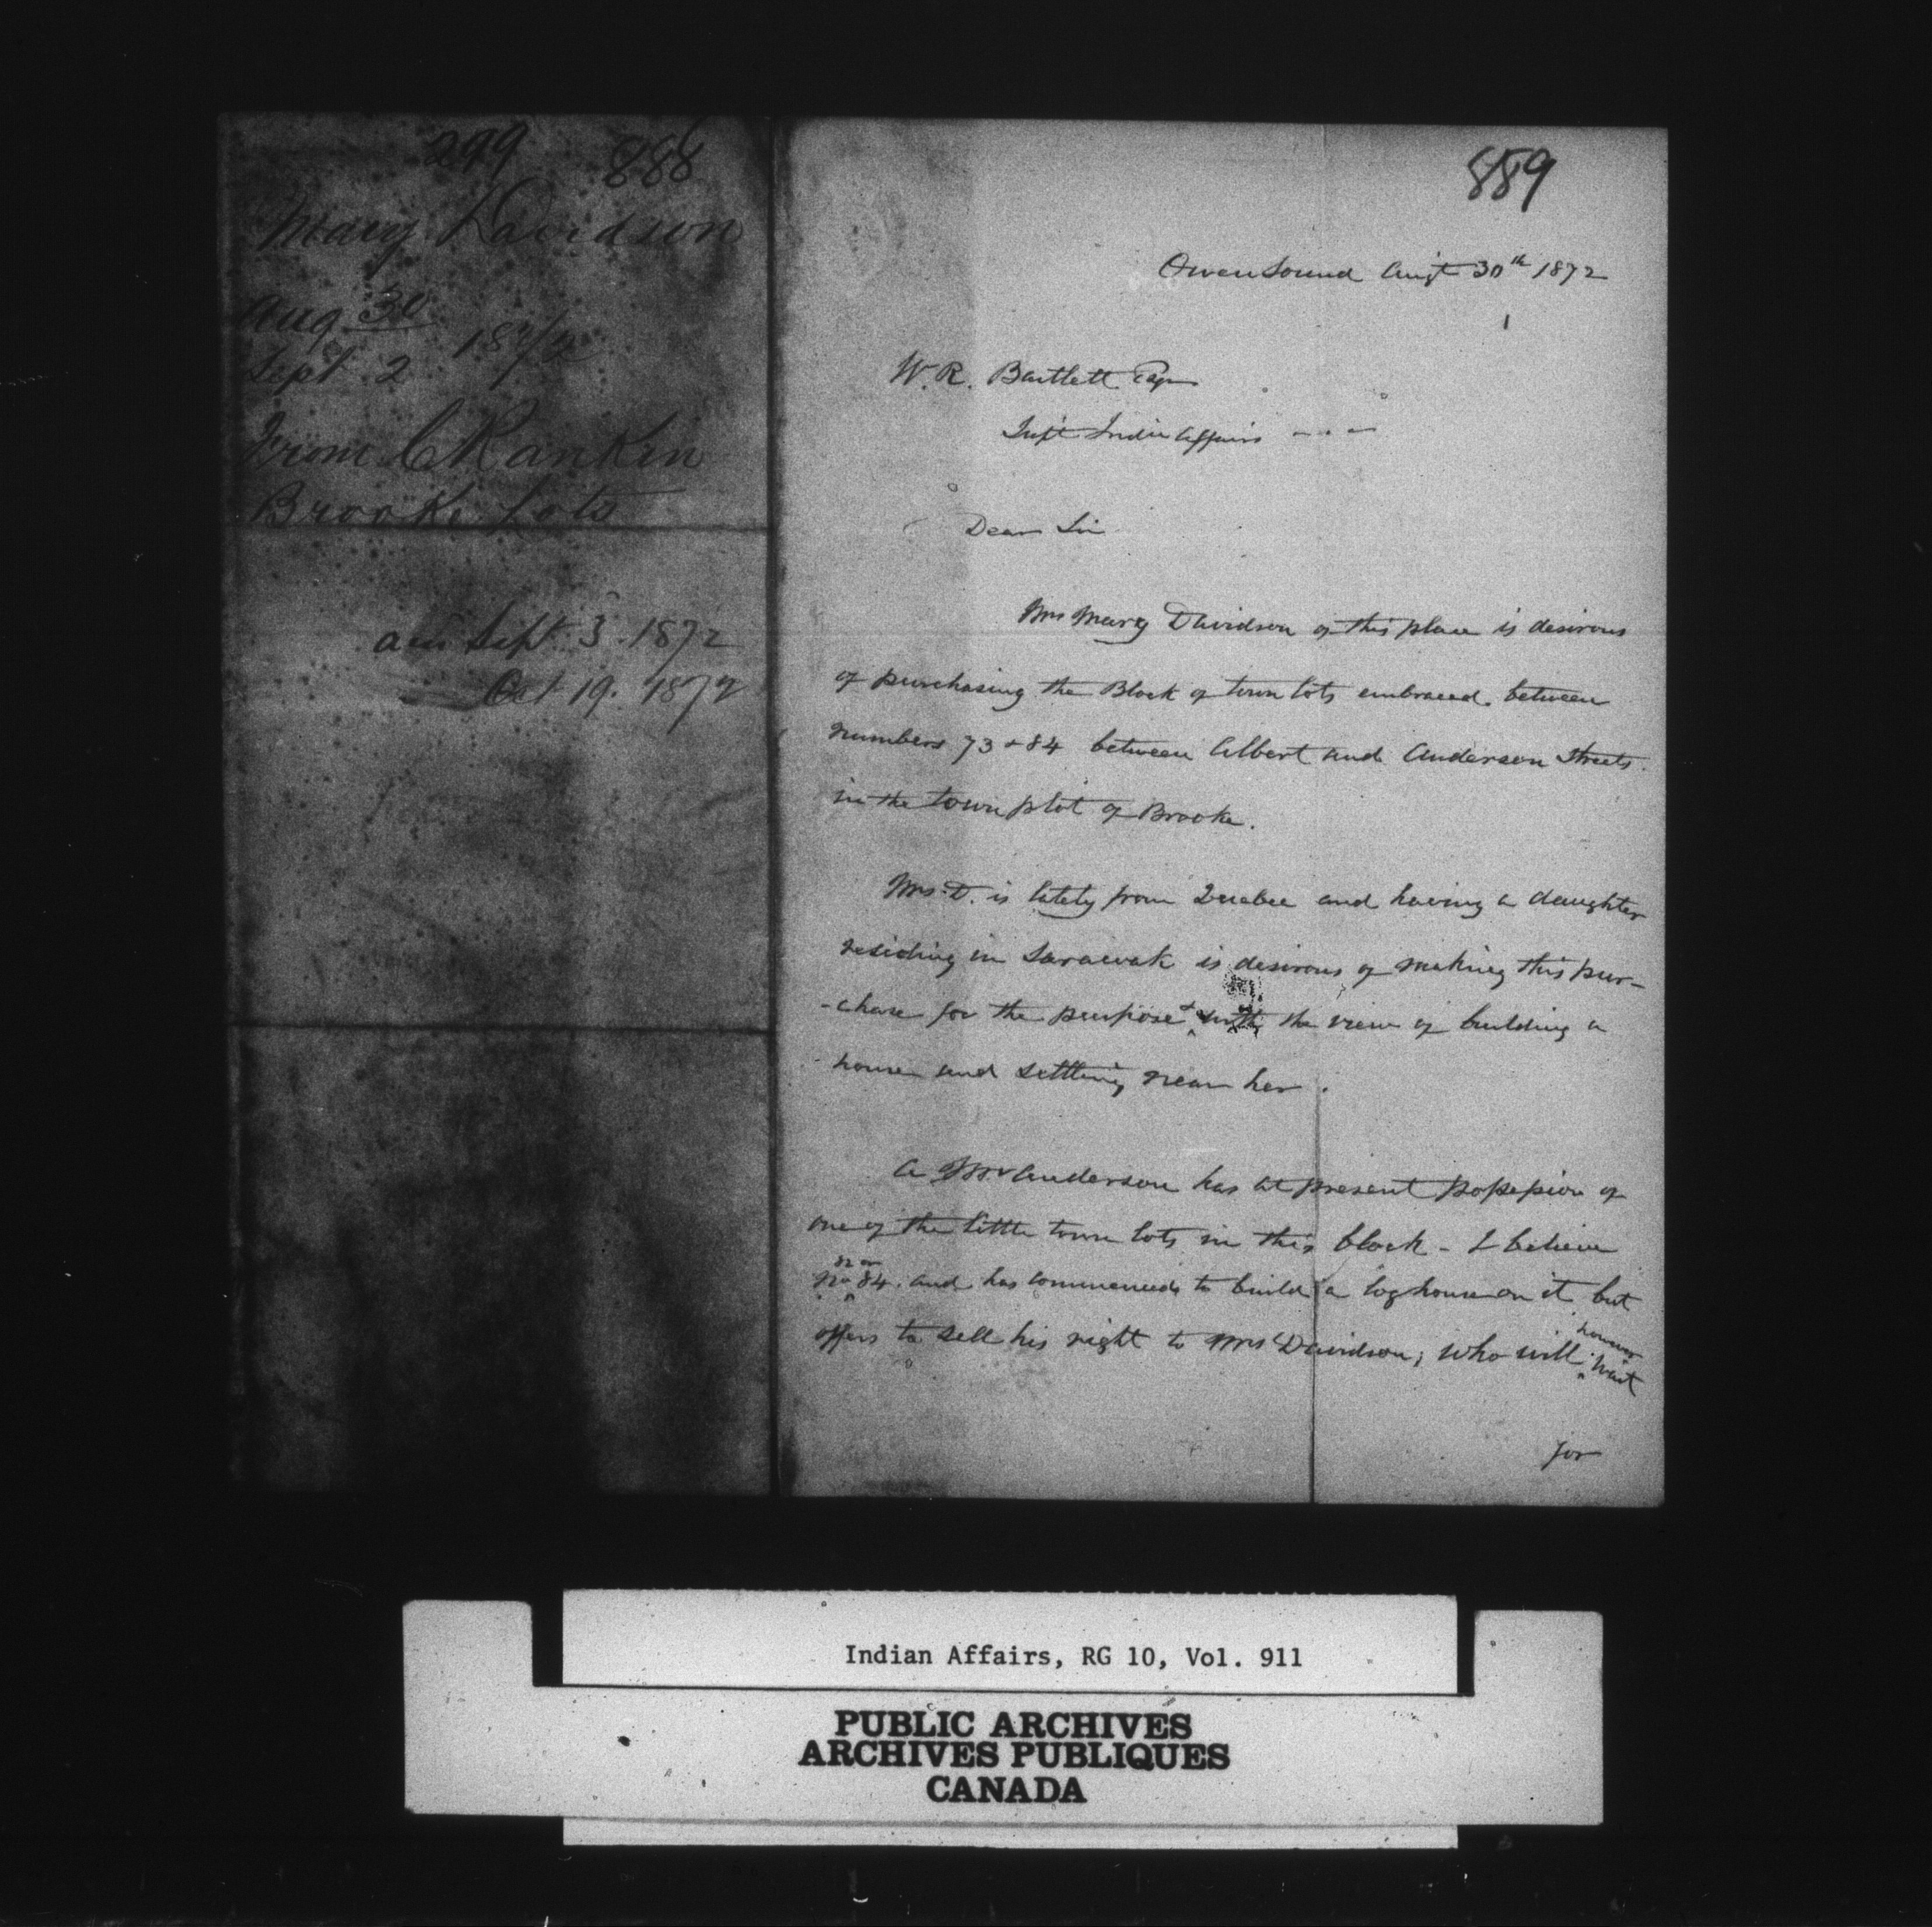 299 888
Mary Davidson
Aug 30
Sept 2 1872
From C Rankin
Brooke Lots
ans Sept 3. 1872
Oct 19. 1872
889
Owen Sound Augt 30th 1872
W. R. Bartlett Esqr
Supt Indian Affairs
Dear Sir
Mrs Mary Davidson of this place is desirous
of purchasing the Block of town lots embraced between
numbers 73 & 84 between Albert and Anderson Streets
in the town plot of Brooke.
Mrs. D. is lately from Quebec and having a daughter
residing in Sarawak is desirous of making this pur-
-chase for the purpose & with the view of building a
house and settling near her.
A Mr Anderson has at present possession of
one of the little town lots in this block - I believe
82 or
No 84. and has commenced to build a log house on it but
offers to sell his right to Mrs Davidson; who will however wait
for
Indian Affairs, RG 10, Vol. 911
PUBLIC ARCHIVES
ARCHIVES PUBLIQUES
CANADA